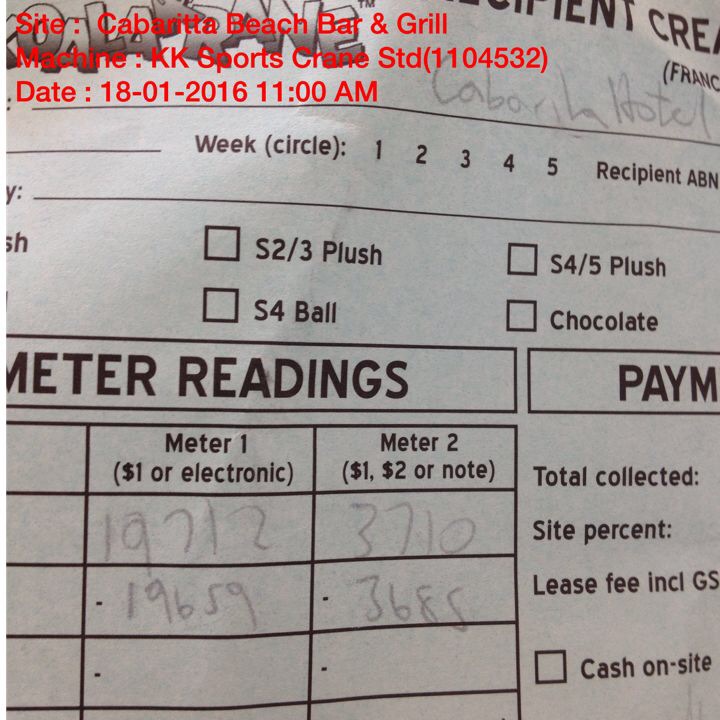 Site :  Cabaritta Beach Bar & Grill
Machine : KK Sports Crane Std(1104532)
Date : 18-01-2016 11:00 AM
CIPIENT CREA
(FRANC
Cabarita Hotel
Week (circle): 1 2 3 4 5 Recipient ABN
y:
sh S2/3 Plush S4/5 Plush
S4 Ball Chocolate
METER READINGS PAYM
Meter 1 Meter 2
($1 or electronic) ($1, $2 or note)
Total collected:
19712 3710
Site percent:
- 19659 - 3685
Lease fee incl GS
- -
Cash on-site